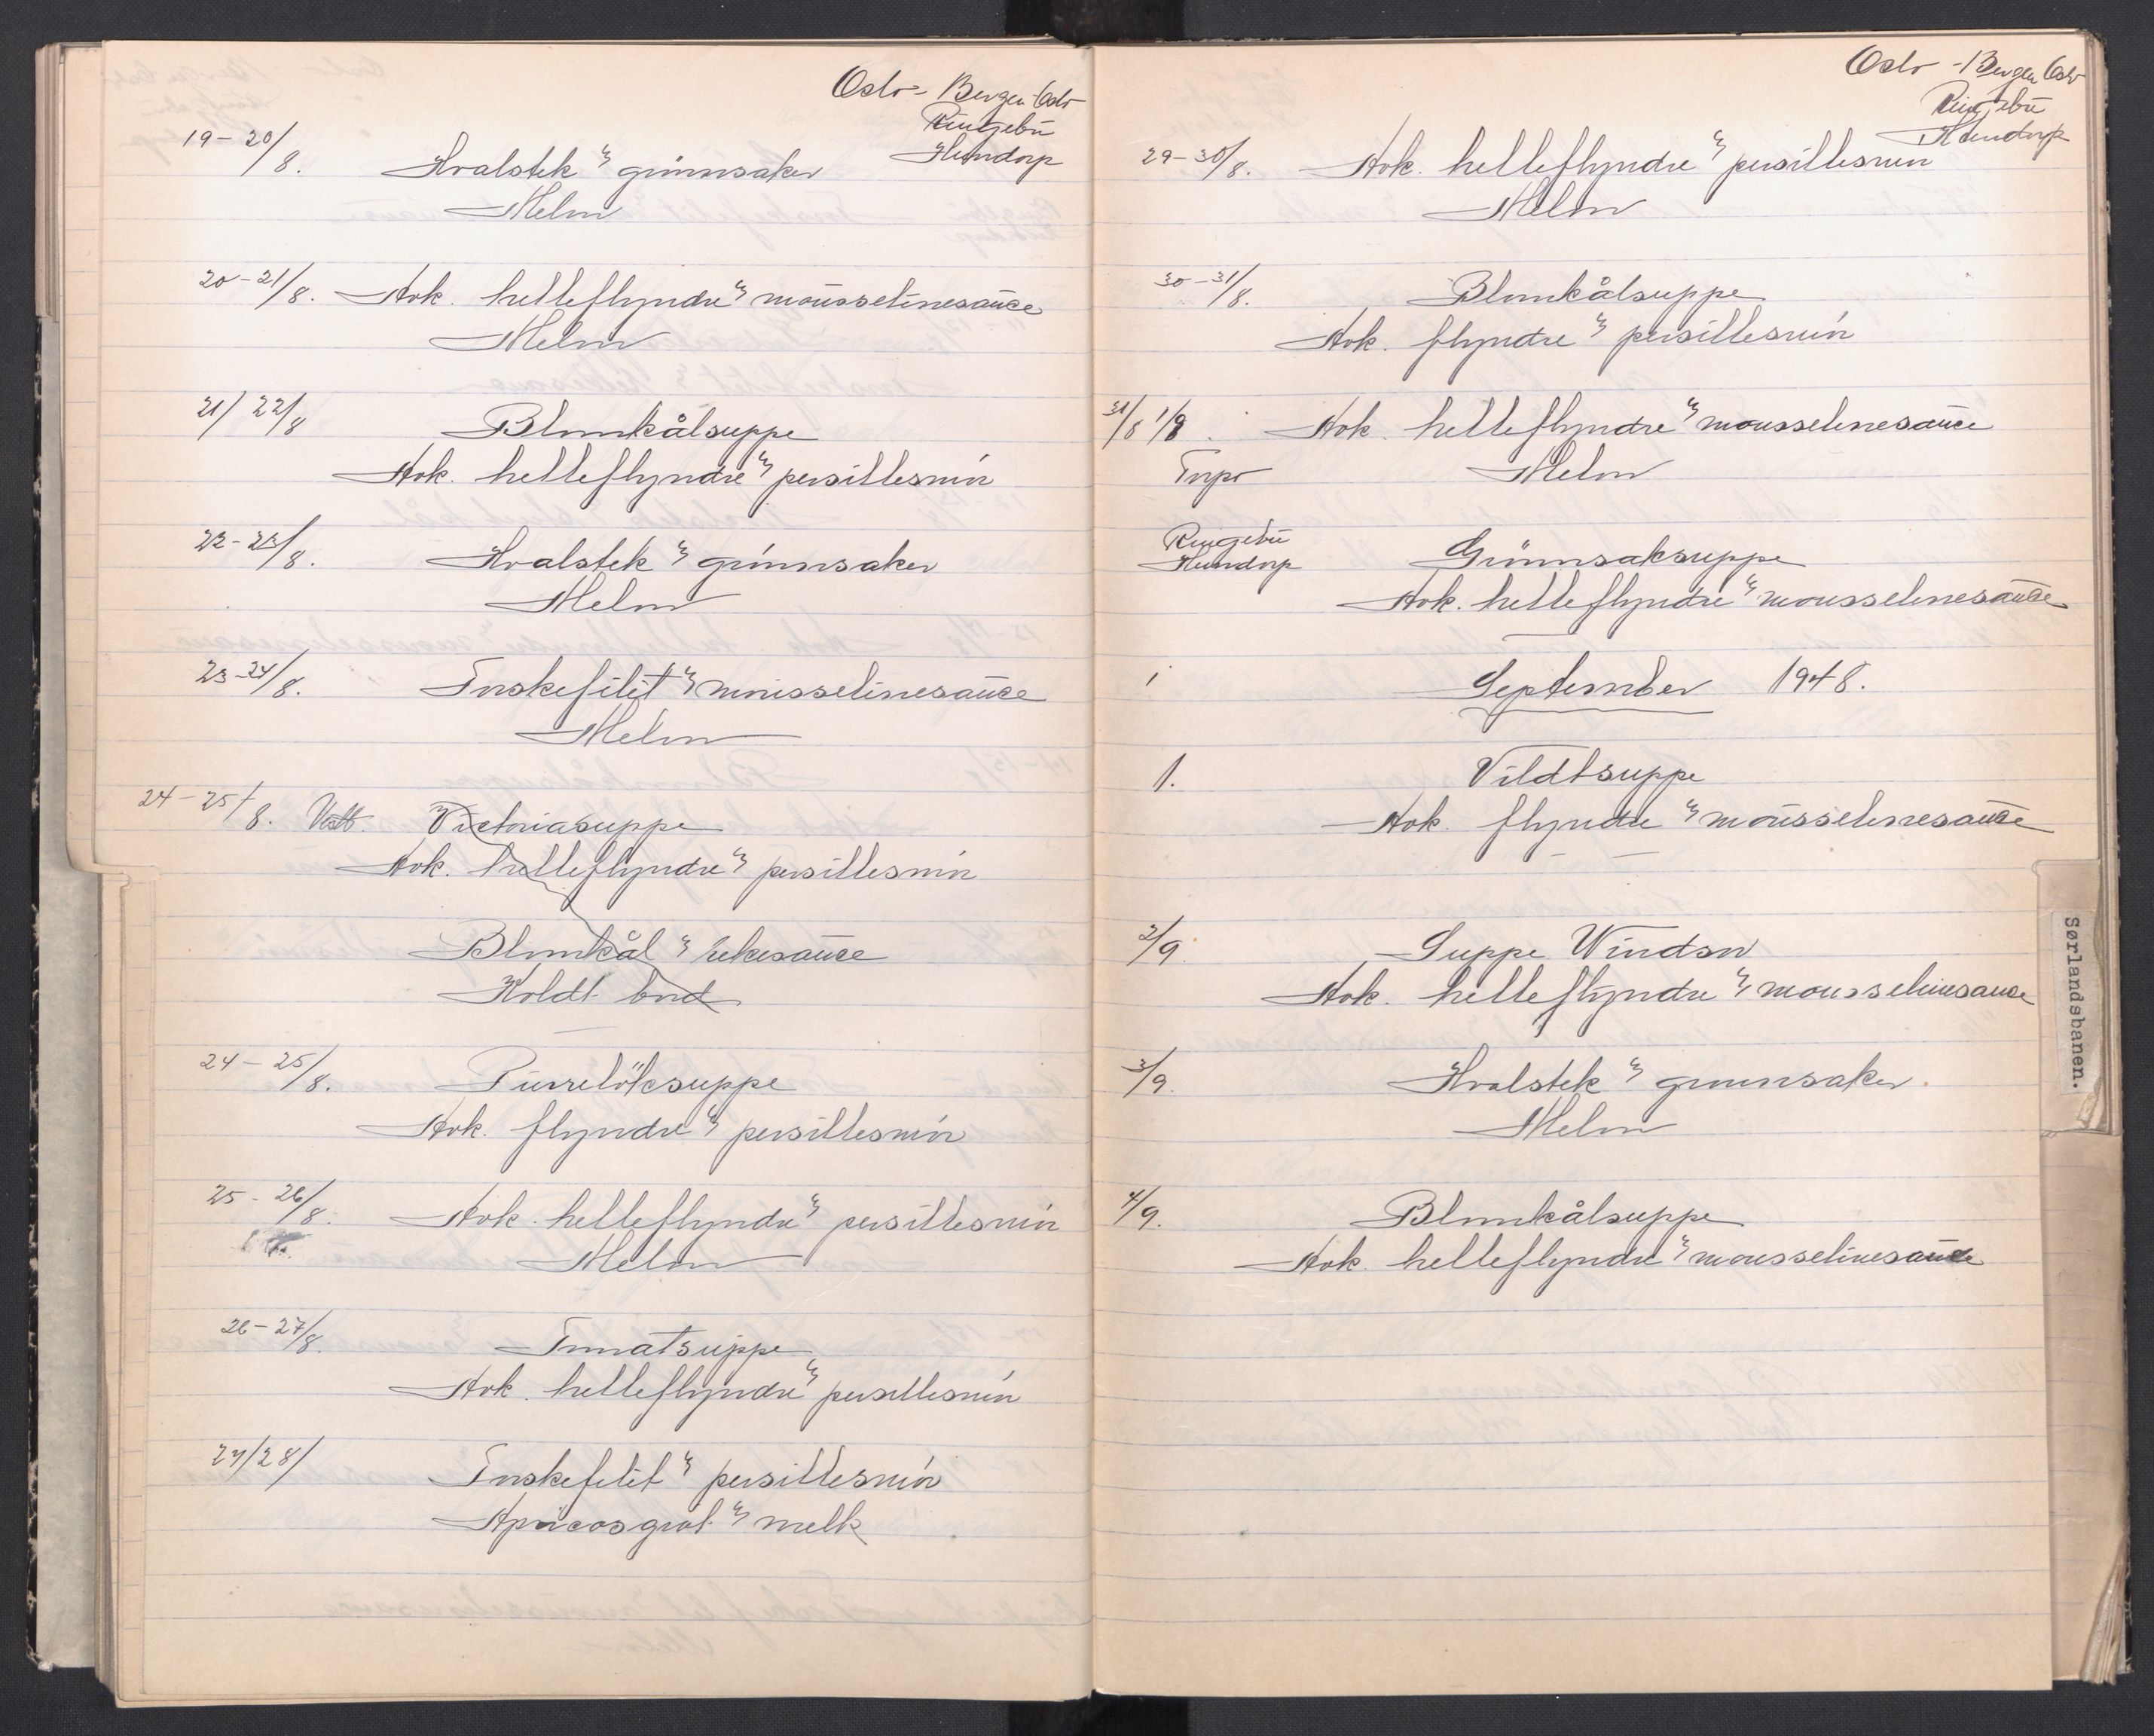 Oslo - Bergen Oslo
Ringebu
Hundorp
19-20/8. Hvalstek m grønnsaker
Melon
20-21/8. Kok. helleflyndre m mousselinesauce
Melon
21/ 22/8 Blomkålsuppe
Kok. helleflyndre m persillesmør
22-23/8. Hvalstek m grønnsaker
Melon
23-24/8. Torskefilet m mousselinesauce
Melon
24-25/8. Victoriasuppe
Kok. helleflyndre m persillesmør
Blomkål m rekesauce
Koldt bord
24-25/8. Purreløksuppe
Kok. flyndre m persillesmør
25-26/8. Kok. helleflyndre m persillesmør
Melon
26-27/8. Tomatsuppe
Kok. helleflyndre m persillesmør
27/28/ Torskefilet m persillesmør
Apricosgrøt m melk
Oslo - Bergen Oslo
Ringebu
Hundorp
29-30/8. Kok. helleflyndre m persillesmør
Melon
30-31/8. Blomkålsuppe
Kok. flyndre m persillesmør
31/8 1/9. Kok. helleflyndre m mousselinesauce
Torpo Melon
Ringebu
Hundorp Grønnsaksuppe
Kok. helleflyndre m mousselinesauce
September 1948.
1. Vildtsuppe
Kok. flyndre m mousselinesauce
2/9. Suppe Windsor
Kok. helleflyndre m mousselinesauce
3/9. Hvalstek m grønnsaker.
Melon
4/9. Blomkålsuppe
Kok. helleflyndre m mousselinesauce
Sørlandsbanen.